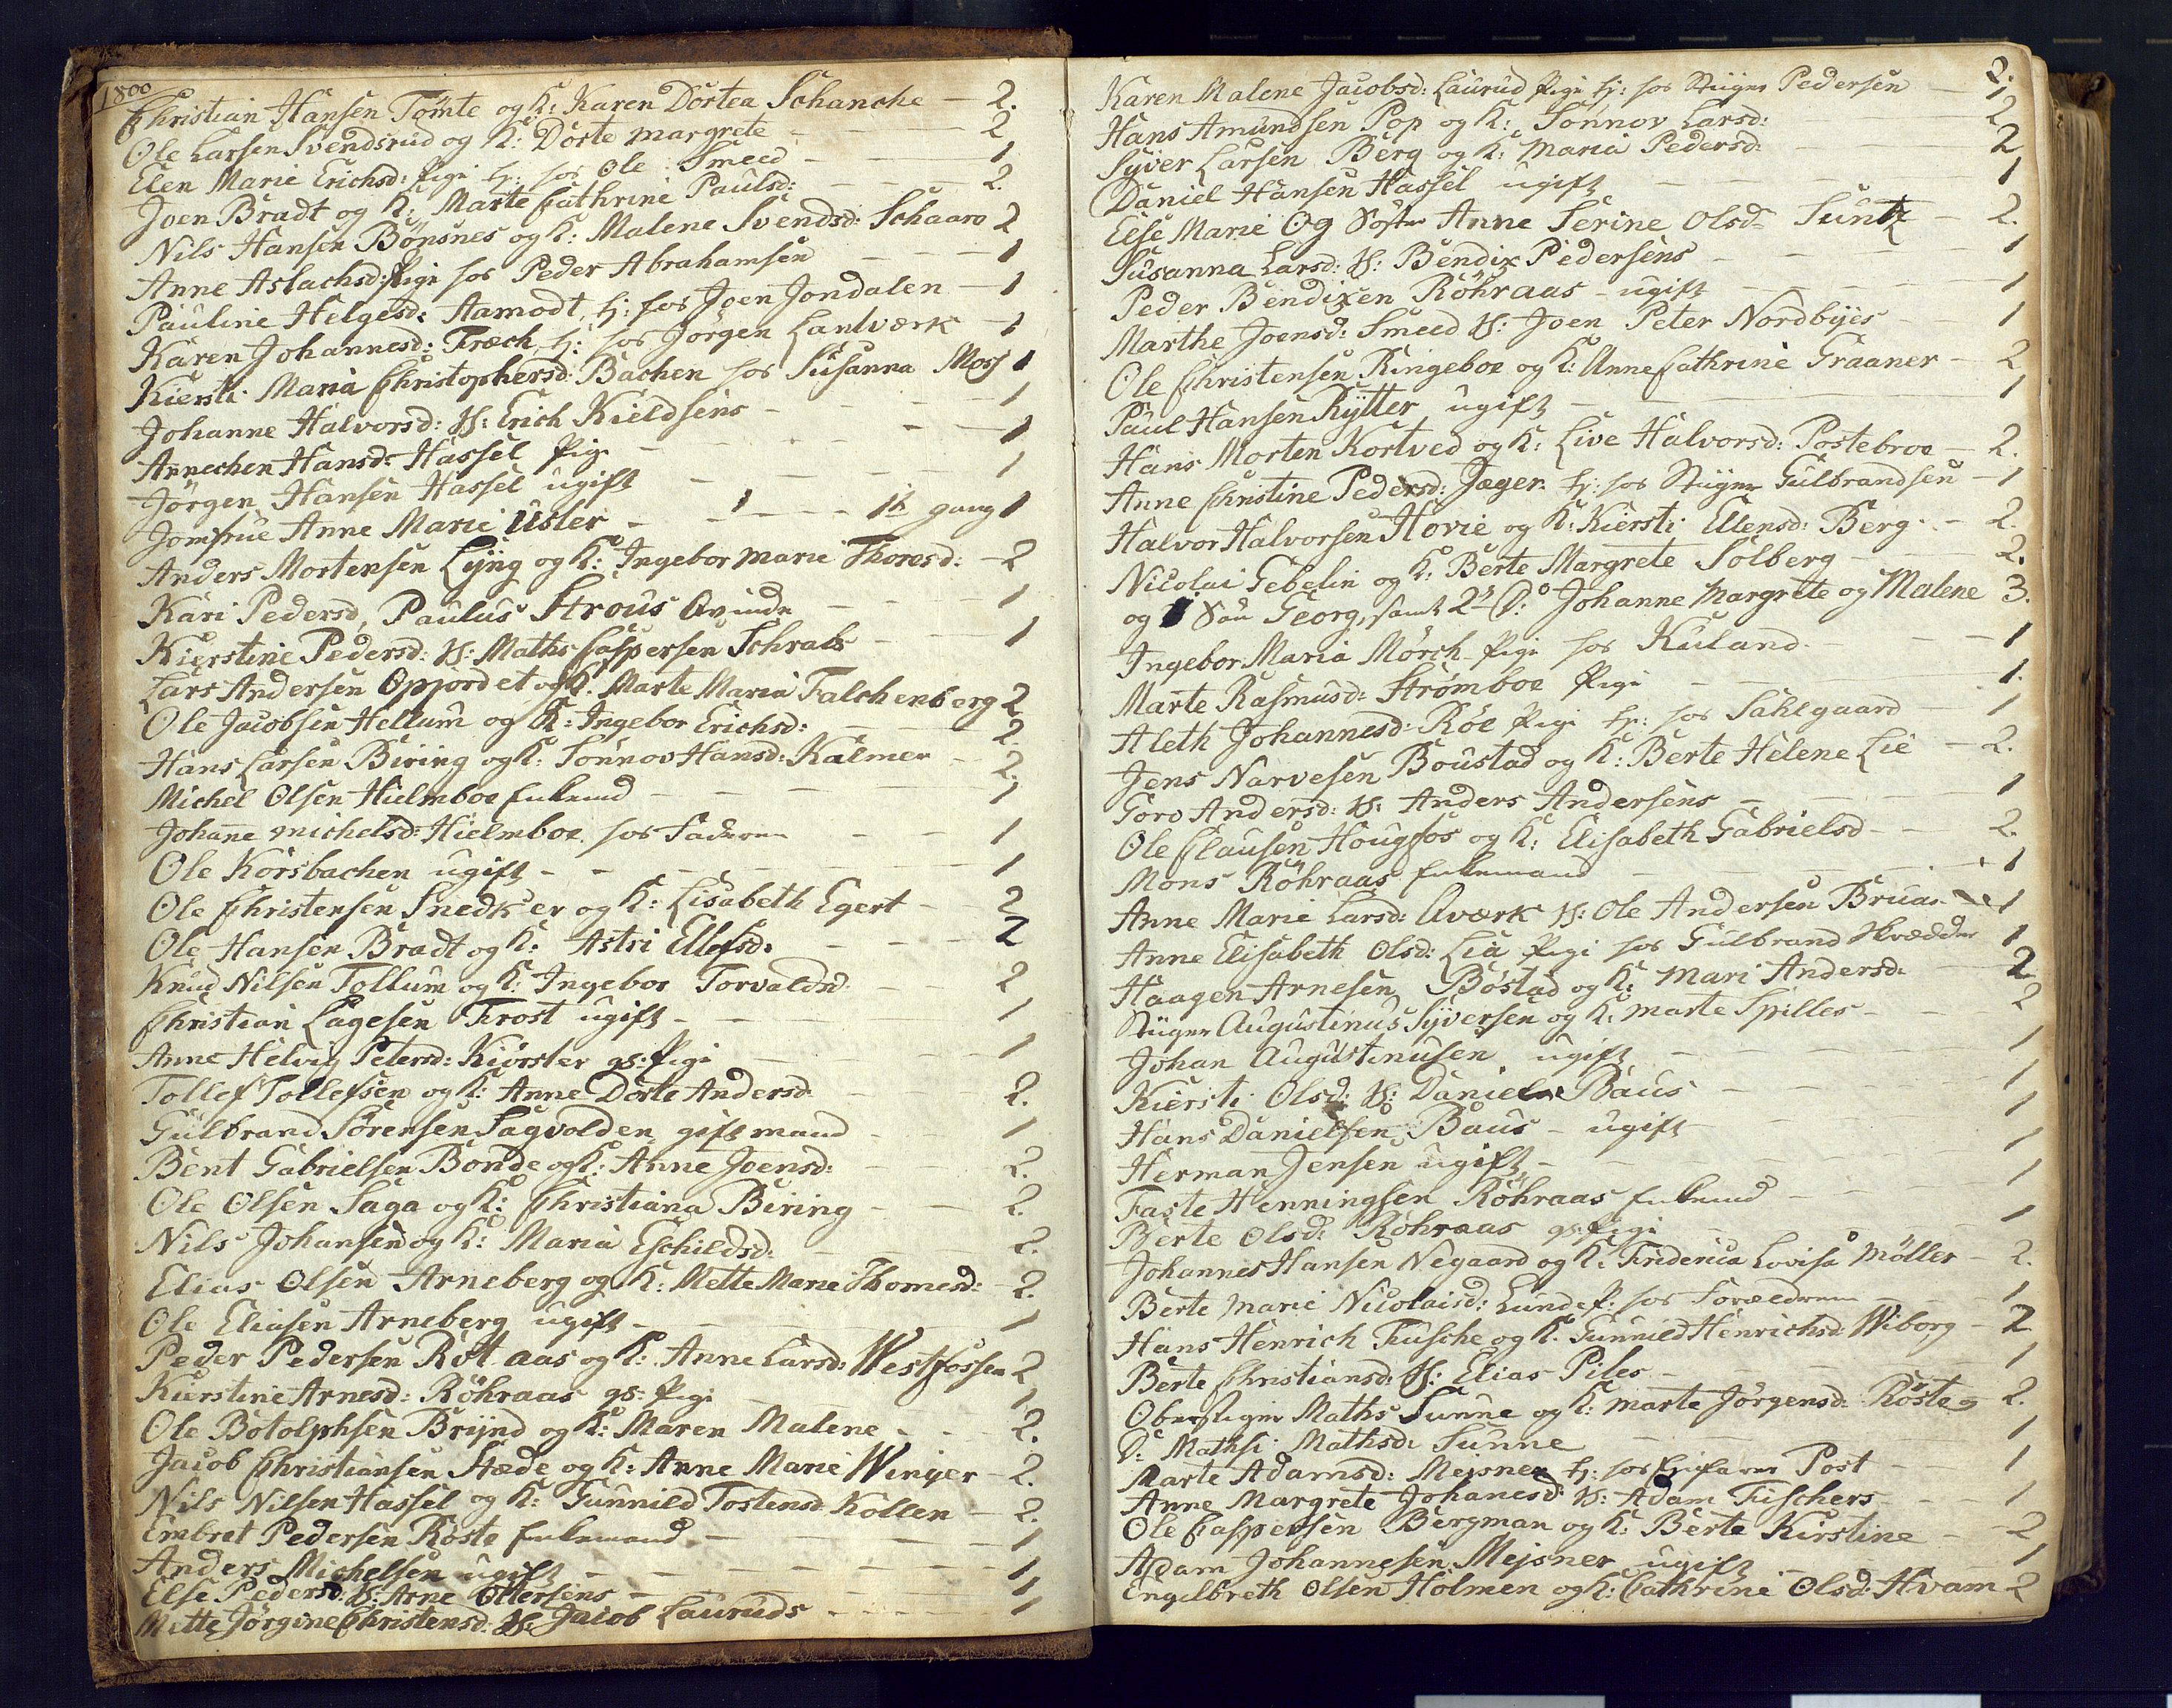 1800
Christian Hansen Tömte og K: Karen Dortea Schanche — 2.
Ole Larsen Svendsrud og K: Dorte margrete — 2
Elen Marie Erichsd: Pige tj: hos Ole Smeed — 1
Joen Bradt og K: Marte Cathrine Paulsd: — 2.
Nils Hansen Bönsnes og K: Malene Svendsd: Schaaro 2
Anne Aslachsd: Pige hos Peder Abrahamsen — 1
Pauline Helgesd: Aamodt, tj: hos Joen Jondalen — 1
Karen Johannesd: Fræch tj: hos Jörgen Lantværk — 1
Kiersti Maria Christophersd: Bachen hos Susanna Mosj 1
Johanne Halvorsd: H: Erich Kieldsens — 1
Annechen Hansd: Hassel Pige — 1
Jörgen Hansen Hassel ugift — 1
Jomfrue Anne Marie Usler — 1te gang 1
Anders Mortensen Lÿng og K: Ingebor marie Thoresd: — 2
Kari Pedersd, Paulus Strous Qvinde — 1
Kierstine Pedersd: H: Maths Caspersen Schrabs — 1
Lars Andersen Opjordet og K: Marte Maria Falchenberg 2
Ole Jacobsen Hellum og K: Ingebor Erichsd: — 2
Hans Larsen Biring og K: Sönnov Hansd: Kalmer — 2.
Michel Olsen Hielmboe Enkemd — 1
Johanne michelsd: Hielmboe hos Faderen — 1
Ole Korsbachen ugift — 1
Ole Christensen Snedker og K: Lisabeth Egert — 2
Ole Hansen Bradt og K: Astri Ellefsd: — 2
Knud Nilsen Tollum og K: Ingebor Torvaldsd: — 2
Christian Lagesen Frost ugift — 1
Anne Helvig Petersd: Kiörster gs: Pige — 1
Tollef Tollefsen og K: Anne Dorte Andersd — 2.
Gulbrand Sörensen Sagvolden gift mand — 1
Bent Gabrielsen Bonde og K: Anne Joensd: — 2.
Ole Olsen Saga og K: Christiana Biring — 2.
Nils Johansen og K: Maria Eschildsd: — 2.
Elias Olsen Arneberg og K: Mette Marie Thomesd: — 2.
Ole Eliasen Arneberg ugift — 1
Peder Pedersen Röt aas og K: Anne Larsd: Westfossen 2
Kierstine Arnesd: Röhraas gs: Pige — 1
Ole Botolphsen Brÿnd og K: Maren Malene — 2.
Jacob Christiansen Stæde og K: Anne Marie Winger — 2.
Nils Nilsen Hassel og K: Gunnild Tostensd Kollen — 2.
Embret Pedersen Röste Enkemand — 1
Anders Michelsen ugift — 1
Else Pedersd: H: Arne Ottersens — 1
Mette Jörgine Christensd: H: Jacob Lauruds — 1
2.
Karen Malene Jacobsd: Laurud Pige tj: hos Stiger Pedersen — 1
Hans Amundsen Pop og K: Sönnov Larsd: — 2
Syver Larsen Berg og K: Maria Pedersd: — 2
Daniel Hansen Hassel ugift — 1
Else Marie Og Söster Anne Serine Olsd: Suntz — 2.
Susanna Larsd: H: Bendix Pedersens — 1
Peder Bendixen Röhraas — ugift — 1
Marthe Joensd: Smeed H: Joen Peter Nordbÿes — 1
Ole Christensen Ringeboe og K: Anne Cathrine Graaner — 2
Paul Hansen Rÿtter ugift — 1
Hans Morten Kortved og K: Live Halvorsd: Postebroe — 2.
Anne Christine Pedersd: Jæger. tj: hos Stiger Gulbrandsen — 1
Halvor Halvorsen Hovie og K: Kiersti Ellensd: Berg — 2.
Nicolai Gebelin og K: Berte Margrete Solberg — 2.
og 1 Sön Georg, samt 2de D: Johanne Margrete og Malene 3.
Ingebor Maria Mörch Pige hos Kuland — 1
Marte Rasmusd: Strömboe Pige — 1.
Aleth Johannesd: Röe Pige tj: hos Sahlgaard — 1
Jens Narvesen Boustad og K: Berte Helene Lie — 2.
Goro Andersd: H: Anders Andersens — 1
Ole Clausen Hougfos og K: Elisabeth Gabrielsd — 2.
Mons Röhraas Enkemand — 1
Anne Marie Larsd: Aværk H: Ole Andersen Bruas — 1
Anne Elisabeth Olsd: Lia Pige hos Gulbrand Skrædder 1
Haagen Arnesen Böstad og K: Mari Andersd: — 2
Stiger Augustinus Sÿversen og K: Marte Spilles — 2
Johan Augustinusen ugift — 1
Kiersti Olsd: H: Daniels Baus — 1
Hans Danielsen Baus — ugift — 1
Herman Jensen ugift — 1
Faste Henningsen Röhraas Enkemd — 1
Berte Olsd: Röhraas gs: Pige — 1
Johannes Hansen Negaard og K: Friderica Lovisa Möller — 2.
Berte Marie Nicolaisd: Lunde P: hos Forældrene — 1
Hans Henrich Fusche og K: Gunnild Henrichsd Wiborg — 2
Berte Christiansd: H: Elias Piles — 1
Oberstiger Maths Sunne og K: Marte Jörgensd: Röste og 2.
D: Mathsi Mathsd: Sunne — 1
Marte Adamsd: Meisner tj: hos Post — 1
Anne Margrete Johanesd: H: Adam Fuschers — 1
Ole Caspersen Bergman og K: Berte Kirstine — 2
Adam Johannesen Mejsner ugift — 1
Engelbreth Olsen Holmen og K: Cathrine Olsd: Hvam 2